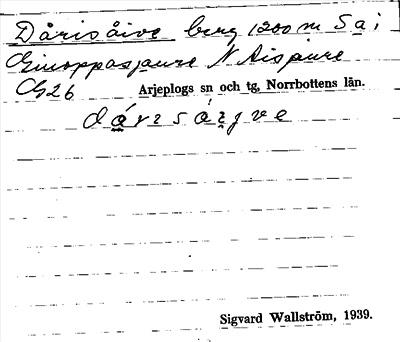 Dårisåive berg 1200 m S a i
Ginoppasjaure N Aisjaure
G26 Arjeplogs sn och tg, Norrbottens län.
dárisáiʒve
Sigvard Wallström, 1939.